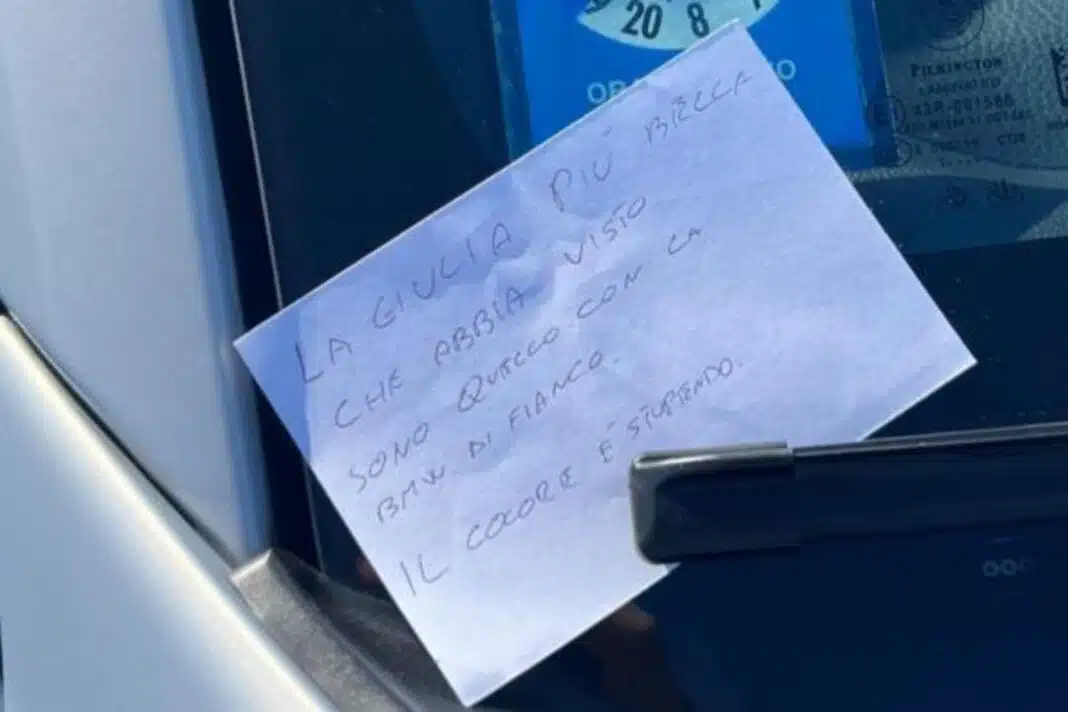 20 8
PILKINGTON
43R-001586
LA GIULIA PIÙ BELLA
CHE ABBIA VISTO
SONO QUELLO CON LA
BMW DI FIANCO.
IL COLORE E' STUPENDO.